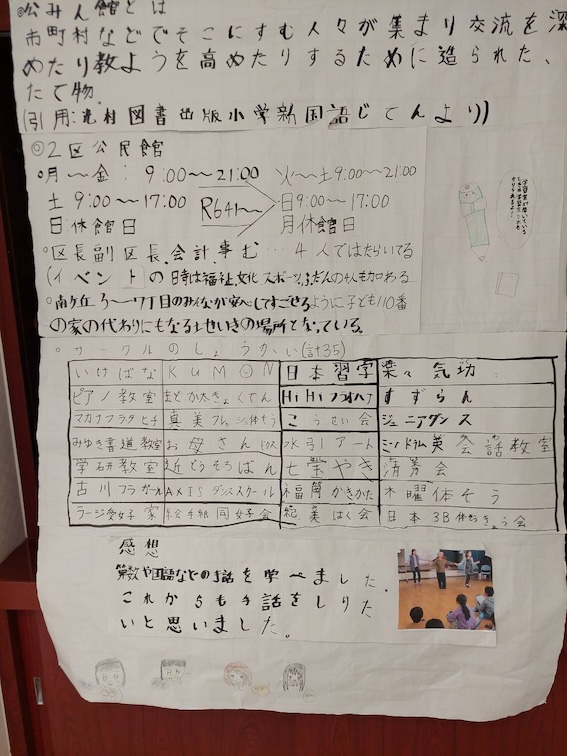 ◎公みん館とは
市町村などでそこにすむ人々が集まり交流を深
めたり教ようを高めたりするために造られた、
たて物。
(引用:光村図書出版小学新国語じてんより))
◎2区公民館
○月〜金: 9:00〜21:00
土 9:00〜17:00
日:休館日
R6.4.1〜
火〜土9:00〜21:00
日9:00〜17:00
月休館日
○区長副区長、会計、事む…4人ではたらいてる
(イベント)の時は福祉、文化、スポーツ、ぶだんの4人も加わる
○南ケ丘 〜7丁目のみんなが安心してすごせるように子ども110番
の家の代わりにもなる地せいきの場所となっている。
○サークルのしょうかい(計35)
いけばな KUMON 日本習字 楽々気功
ピアノ教室 まどか太きょくてん HiHiフラオハナ すずらん
マカナフラタヒチ 真美 体そう こうせい会 ジュニアダンス
みゆき書道教室 お母さん 水引アート 英会話教室
学研教室 近どうそろばん 七宝やき 清芳会
古川フラガール AXISダンススクール 福筒かきかた 木曜体そう
絵手紙同好会 はく会 日本3B体そう会
感想
算数や国語などの手話を学べました。
これからも手話をしりた
いと思いました。